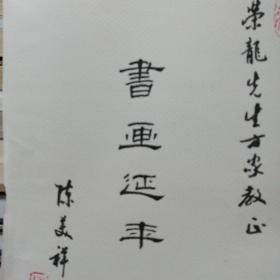 榮龍先生方家教正
書画延年
陈美祥